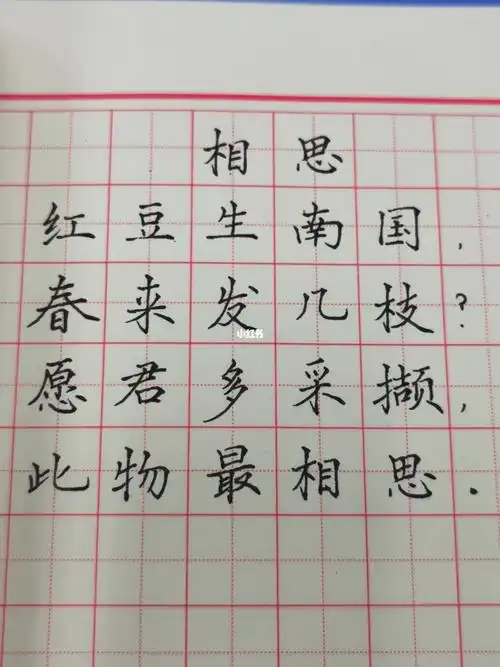 相思
红豆生南国,
春来发几枝?
小红书
愿君多采撷,
此物最相思.